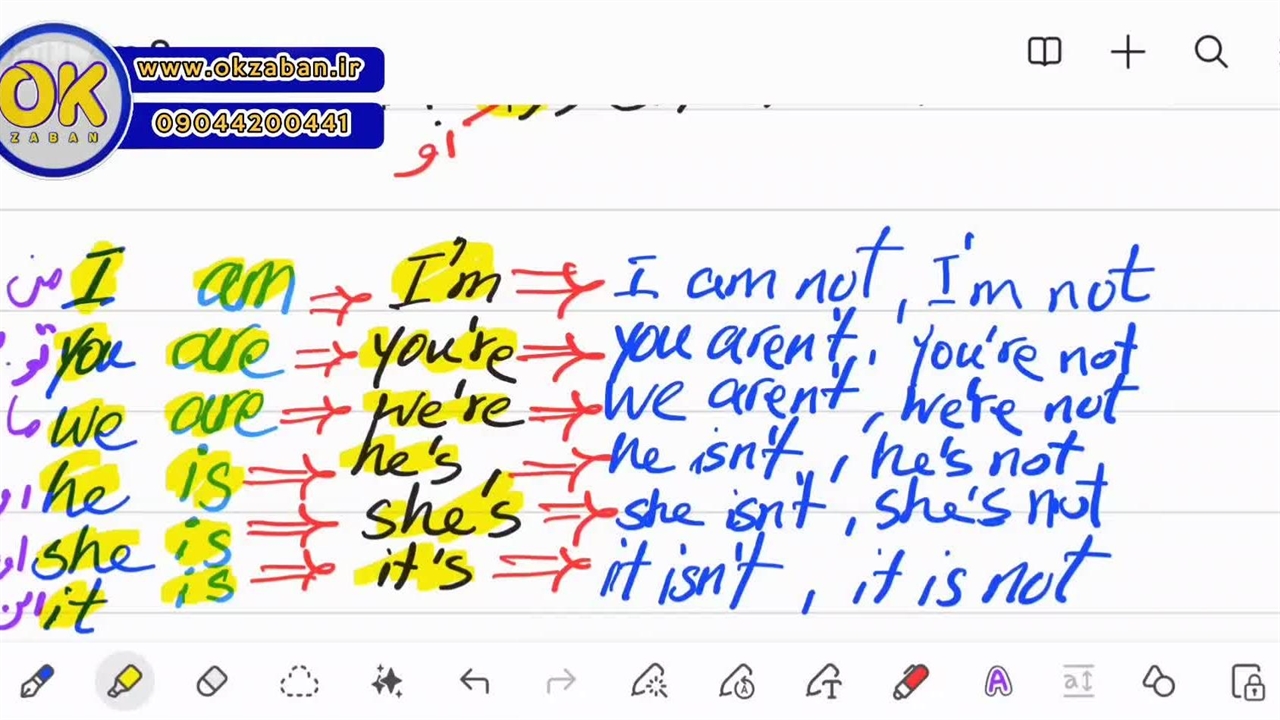 OK
ZABAN
www.okzaban.ir
09044200441
او
من I am ⇒ I'm ⇒ I am not, I'm not
تو you are ⇒ you're ⇒ you aren't, you're not
ما we are ⇒ we're ⇒ we aren't, we're not
او he is ⇒ he's ⇒ he isn't, he's not
او she is ⇒ she's ⇒ she isn't, she's not
این it is ⇒ it's ⇒ it isn't, it is not